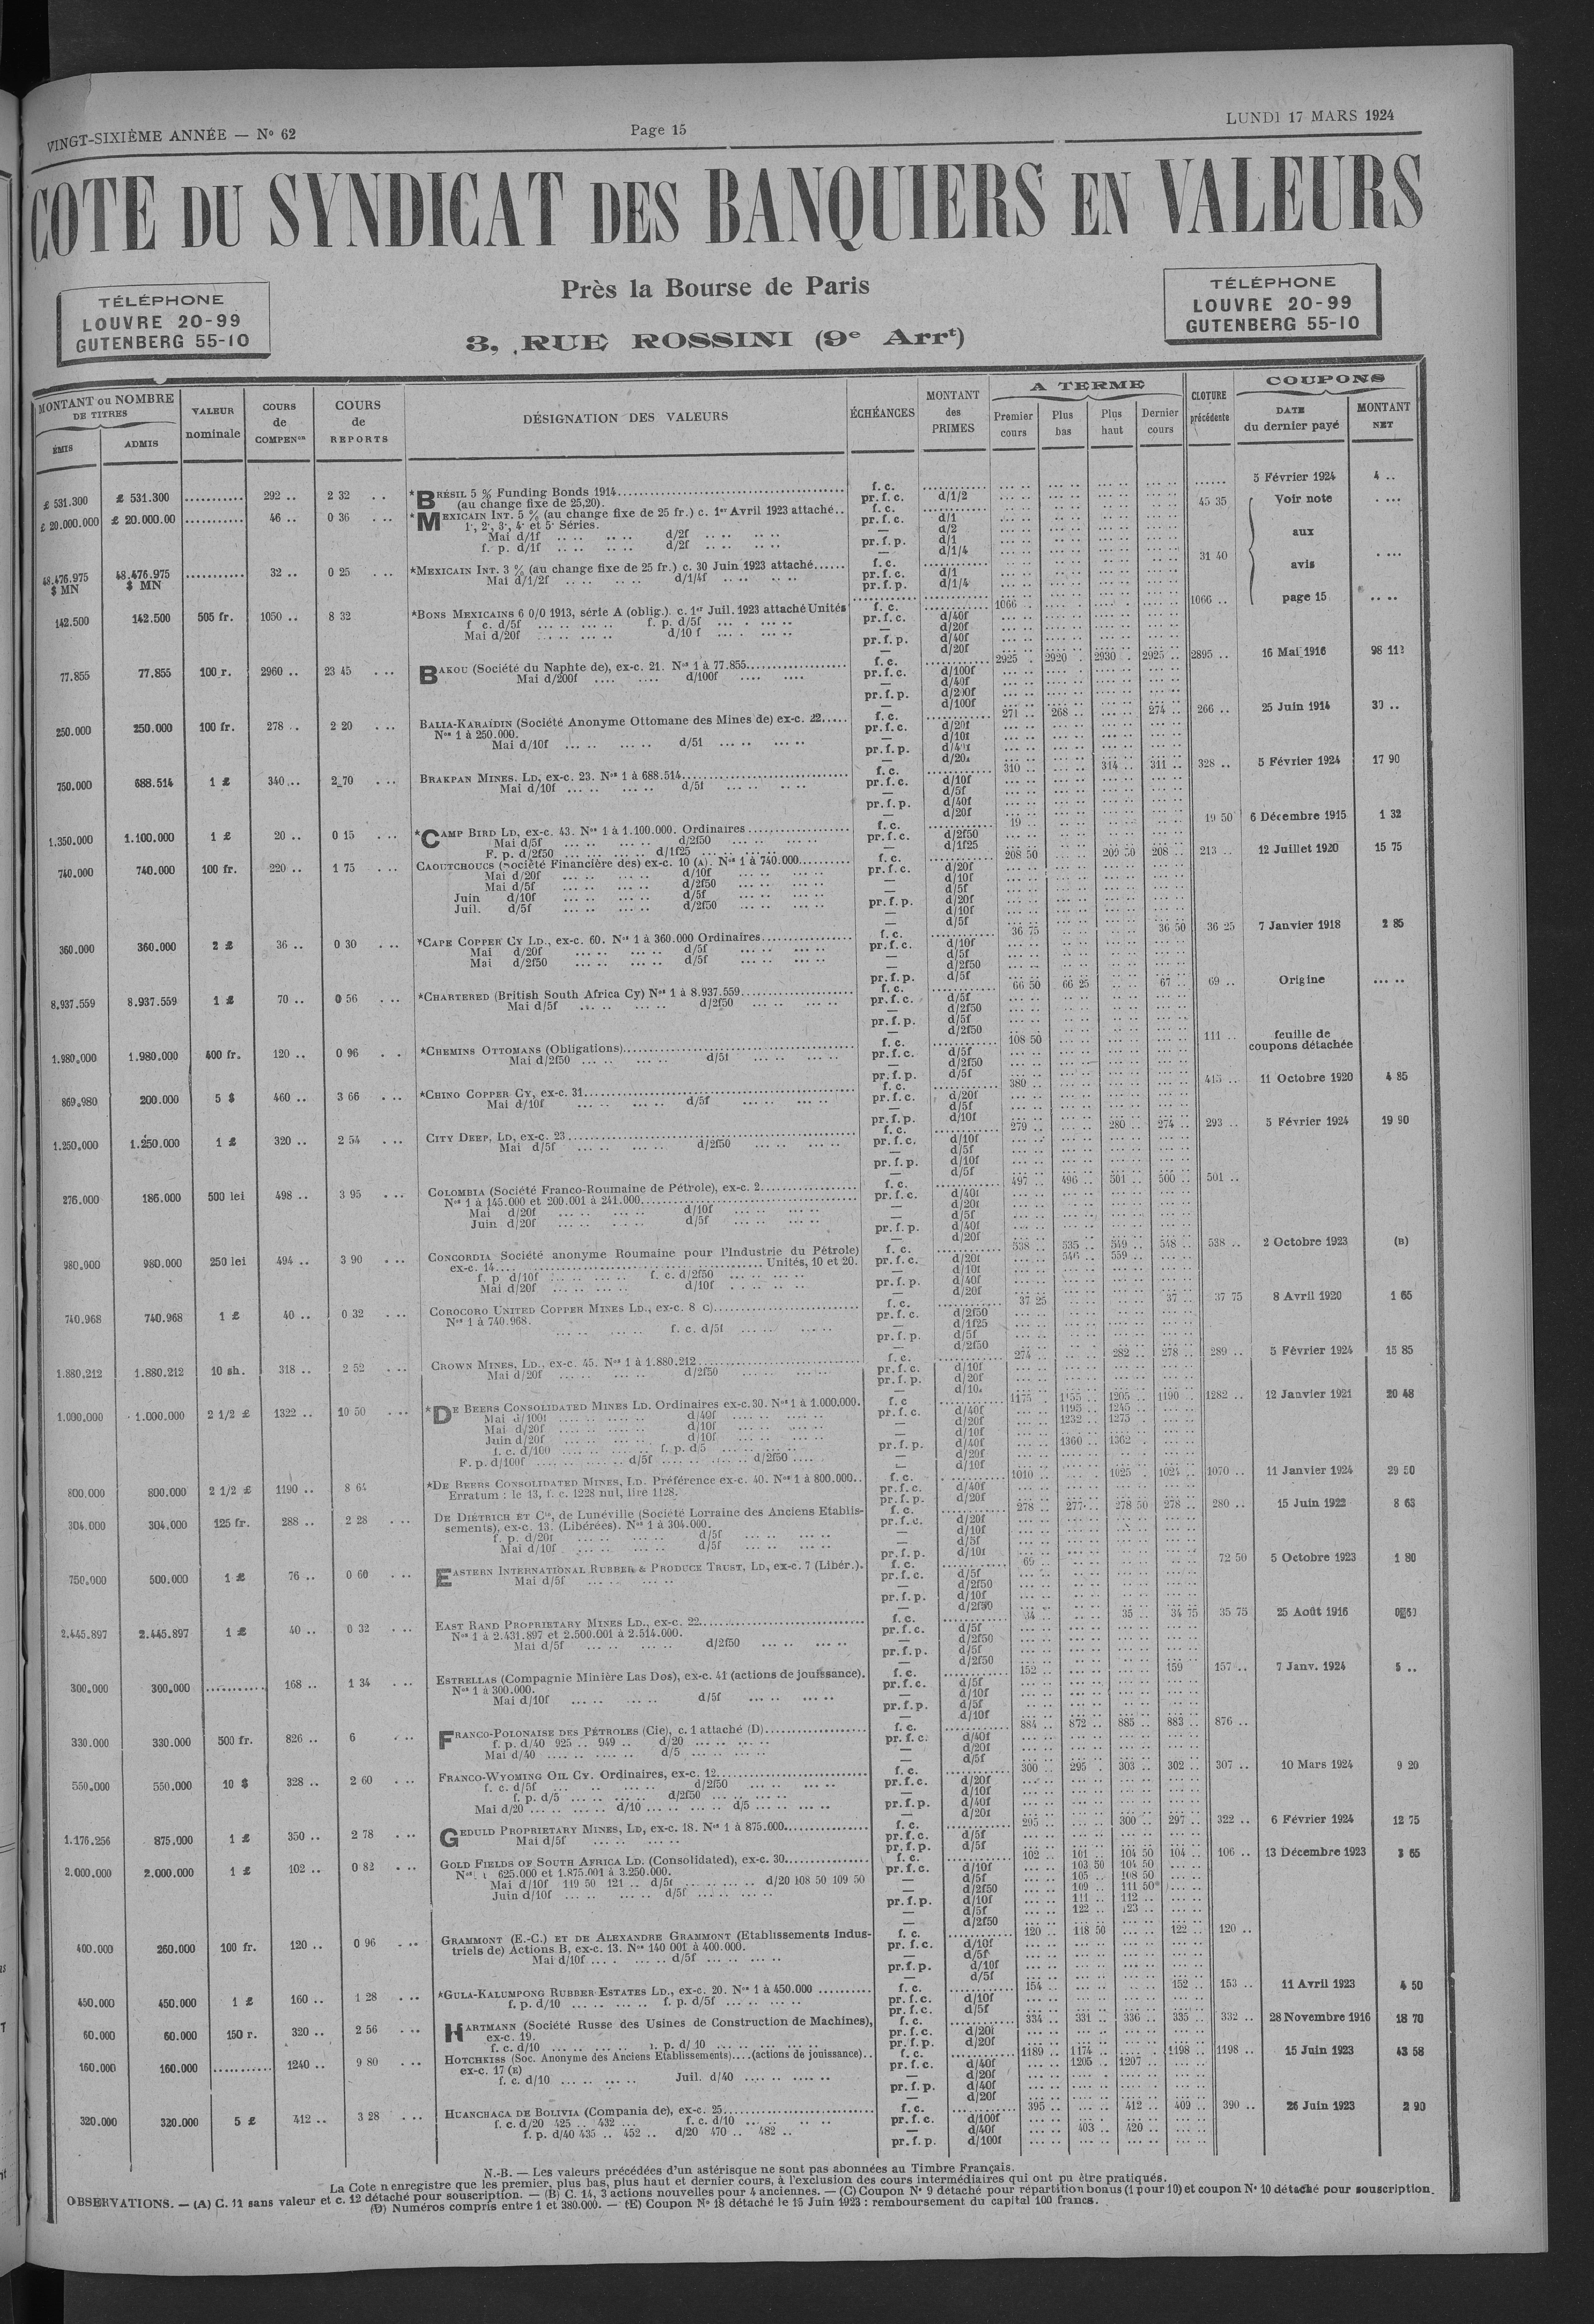 VINGT-SIXIÈME ANNÉE — No 62
Page 15
LUNDI 17 MARS 1924
COTE DU SYNDICAT DES BANQUIERS EN VALEURS
Près la Bourse de Paris
3, RUE ROSSINI (9e Arrt)
TÉLÉPHONE
LOUVRE 20-99
GUTENBERG 55-10
TÉLÉPHONE
LOUVRE 20-99
GUTENBERG 55-10
MONTANT ou NOMBRE DE TITRES
ÉMIS
ADMIS
VALEUR nominale
COURS de COMPENon
COURS de REPORTS
DÉSIGNATION DES VALEURS
ÉCHÉANCES
MONTANT des PRIMES
A TERME
Premier cours
Plus bas
Plus haut
Dernier cours
CLOTURE précédente
COUPONS
DATE du dernier payé
MONTANT NET
£ 531.300 £ 531.300 292 .. 2 32 *BRÉSIL 5 % Funding Bonds 1914 f. c. 5 Février 1924 4 ..
(au change fixe de 25,20). pr. f. c. d/1/2
£ 20.000.000 £ 20.000.00 46 .. 0 36 *MEXICAIN INT. 5 % (au change fixe de 25 fr.) c. 1er Avril 1923 attaché.. f. c. 45 35 Voir note aux avis page 15
1e, 2e, 3e, 4e et 5e Séries. pr. f. c. d/1
Mai d/1f d/2f — d/2
f. p. d/1f d/2f pr. f. p. d/1
— d/1/4
48.476.975 $ MN 48.476.975 $ MN 32 .. 0 25 *MEXICAIN INT. 3 % (au change fixe de 25 fr.) c. 30 Juin 1923 attaché f. c. 31 40
Mai d/1/2f d/1/4f pr. f. c. d/1
pr. f. p. d/1/4
142.500 142.500 505 fr. 1050 .. 8 32 *BONS MEXICAINS 6 0/0 1913, série A (oblig.). c. 1er Juil. 1923 attaché Unités f. c. 1066 .. 1066 ..
f. c. d/5f f. p. d/5f pr. f. c. d/40f
Mai d/20f d/10 f — d/20f
pr. f. p. d/40f
— d/20f
77.855 77.855 100 r. 2960 .. 23 45 BAKOU (Société du Naphte de), ex-c. 21. Nos 1 à 77.855 f. c. 2925 .. 2920 .. 2930 .. 2925 .. 2895 .. 16 Mai 1916
Mai d/200f d/100f pr. f. c. d/100f
— d/40f
pr. f. p. d/200f
— d/100f
250.000 250.000 100 fr. 278 .. 2 20 BALIA-KARAÏDIN (Société Anonyme Ottomane des Mines de) ex-c. 22 f. c. 271 .. 268 .. 274 .. 266 .. 25 Juin 1914 30 ..
Nos 1 à 250.000. pr. f. c. d/20f
Mai d/10f d/5f — d/10f
pr. f. p. d/40f
— d/20f
750.000 688.514 1 £ 340 .. 2 70 BRAKPAN MINES. LD, ex-c. 23. Nos 1 à 688.514 f. c. 310 .. 314 .. 311 .. 328 .. 5 Février 1924 17 90
Mai d/10f d/5f pr. f. c. d/10f
— d/5f
pr. f. p. d/40f
— d/20f
1.350.000 1.100.000 1 £ 20 .. 0 15 *CAMP BIRD LD, ex-c. 43. Nos 1 à 1.100.000. Ordinaires f. c. 19 .. 19 50 6 Décembre 1915 1 32
Mai d/5f d/2f50 pr. f. c. d/2f50
F. p. d/2f50 d/1f25 — d/1f25
740.000 740.000 100 fr. 220 .. 1 75 CAOUTCHOUCS (Société Financière des) ex-c. 10 (A). Nos 1 à 740.000 f. c. 208 50 209 50 208 .. 213 .. 12 Juillet 1920 15 75
Mai d/20f d/10f pr. f. c. d/20f
Mai d/5f d/2f50 — d/10f
Juin d/10f d/5f — d/5f
Juil. d/5f d/2f50 pr. f. p. d/20f
— d/10f
— d/5f
360.000 360.000 2 £ 36 .. 0 30 *CAPE COPPER CY LD., ex-c. 60. Nos 1 à 360.000 Ordinaires f. c. 36 75 36 50 36 25 7 Janvier 1918 2 85
Mai d/20f d/5f pr. f. c. d/10f
Mai d/2f50 d/5f — d/5f
— d/2f50
pr. f. p. d/5f
8.937.559 8.937.559 1 £ 70 .. 0 56 *CHARTERED (British South Africa Cy) Nos 1 à 8.937.559 f. c. 66 50 66 25 67 .. 69 .. Origine
Mai d/5f d/2f50 pr. f. c. d/5f
— d/2f50
pr. f. p. d/5f
— d/2f50
1.980.000 1.980.000 400 fr. 120 .. 0 96 *CHEMINS OTTOMANS (Obligations) f. c. 108 50 111 .. feuille de coupons détachée
Mai d/2f50 d/5f pr. f. c. d/5f
— d/2f50
pr. f. p. d/5f
869.980 200.000 5 $ 460 .. 3 66 *CHINO COPPER CY, ex-c. 31 f. c. 380 .. 415 .. 11 Octobre 1920 4 85
Mai d/10f d/5f pr. f. c. d/20f
— d/5f
pr. f. p. d/10f
1.250.000 1.250.000 1 £ 320 .. 2 54 CITY DEEP, LD, ex-c. 23 f. c. 279 .. 280 .. 274 .. 293 .. 5 Février 1924 19 90
Mai d/5f d/2f50 pr. f. c. d/10f
— d/5f
pr. f. p. d/10f
— d/5f
276.000 186.000 500 lei 498 .. 3 95 COLOMBIA (Société Franco-Roumaine de Pétrole), ex-c. 2 f. c. 497 .. 496 .. 501 .. 500 .. 501 ..
Nos 1 à 145.000 et 200.001 à 241.000 pr. f. c. d/40f
Mai d/20f d/10f — d/20f
Juin d/20f d/5f — d/5f
pr. f. p. d/40f
— d/20f
980.000 980.000 250 lei 494 .. 3 90 CONCORDIA Société anonyme Roumaine pour l'Industrie du Pétrole) f. c. 538 .. 535 .. 549 .. 548 .. 538 .. 2 Octobre 1923 (B)
ex-c. 14 Unités, 10 et 20. pr. f. c. d/20f 546 .. 559 ..
f. p d/10f f. c. d/2f50 — d/10f
Mai d/20f d/10f pr. f. p. d/40f
— d/20f
740.968 740.968 1 £ 40 .. 0 32 COROCORO UNITED COPPER MINES LD., ex-c. 8 C) f. c. 37 25 37 .. 37 75 8 Avril 1920 1 65
Nos 1 à 740.968. pr. f. c. d/2f50
f. c. d/5f — d/1f25
pr. f. p. d/5f
— d/2f50
1.880.212 1.880.212 10 sh. 318 .. 2 52 CROWN MINES, LD., ex-c. 45. Nos 1 à 1.880.212 f. c. 274 .. 282 .. 278 .. 289 .. 5 Février 1924 15 85
Mai d/20f d/2f50 pr. f. c. d/10f
pr. f. p. d/20f
1.000.000 1.000.000 2 1/2 £ 1322 .. 10 50 *DE BEERS CONSOLIDATED MINES LD. Ordinaires ex-c. 30. Nos 1 à 1.000.000. f. c 1175 .. 1155 .. 1205 .. 1190 .. 1282 .. 12 Janvier 1921 20 48
Mai d/100f d/40f pr. f. c. d/40f 1195 .. 1245 ..
Mai d/20f d/10f — d/20f 1232 .. 1275 ..
Juin d/20f d/10f — d/10f
f. c. d/100 f. p. d/5 pr. f. p. d/40f 1360 .. 1362 .
F. p. d/100f d/5f d/2f50 — d/20f
— d/10f
800.000 800.000 2 1/2 £ 1190 .. 8 64 *DE BEERS CONSOLIDATED MINES, LD. Préférence ex-c. 40. Nos 1 à 800.000.. f. c. 1010 .. 1025 .. 1024 .. 1070 .. 11 Janvier 1924 29 50
Erratum : le 13, f. c. 1228 nul, lire 1128. pr. f. c. d/40f
pr. f. p. d/20f
304.000 304.000 125 fr. 288 .. 2 28 DE DIÉTRICH ET Cie, de Lunéville (Société Lorraine des Anciens Etablis- f. c. 278 .. 277 .. 278 50 278 .. 280 .. 15 Juin 1922 8 63
sements), ex-c. 13. (Libérées). Nos 1 à 304.000. pr. f. c. d/20f
f. p. d/20f d/5f — d/10f
Mai d/10f d/5f — d/5f
pr. f. p. d/10f
750.000 500.000 1 £ 76 .. 0 60 EASTERN INTERNATIONAL RUBBER & PRODUCE TRUST, LD, ex-c. 7 (Libér.). f. c. 69 .. 72 50 5 Octobre 1923 1 80
Mai d/5f pr. f. c. d/5f
— d/2f50
pr. f. p. d/10f
— d/2f50
2.445.897 2.445.897 1 £ 40 .. 0 32 EAST RAND PROPRIETARY MINES LD., ex-c. 22 f. c. 34 .. 35 .. 34 75 35 75 25 Août 1916
Nos 1 à 2.431.897 et 2.500.001 à 2.514.000. pr. f. c. d/5f
Mai d/5f d/2f50 — d/2f50
pr. f. p. d/5f
— d/2f50
300.000 300.000 168 .. 1 34 ESTRELLAS (Compagnie Minière Las Dos), ex-c. 41 (actions de jouissance). f. c. 152 .. 159 157 .. 7 Janv. 1924 5 ..
Nos 1 à 300.000. pr. f. c. d/5f
Mai d/10f d/5f — d/10f
pr. f. p. d/5f
— d/10f
330.000 330.000 500 fr. 826 .. 6 FRANCO-POLONAISE DES PÉTROLES (Cie), c. 1 attaché (D) f. c. 884 .. 872 .. 885 .. 883 .. 876 ..
f. p. d/40 925 .. 949 .. d/20 pr. f. c. d/40f
Mai d/40 d/5 — d/20f
— d/5f
550.000 550.000 10 $ 328 .. 2 60 FRANCO-WYOMING OIL CY. Ordinaires, ex-c. 12 f. c. 300 .. 295 .. 303 .. 302 .. 307 .. 10 Mars 1924 9 20
f. c. d/5f d/2f50 pr. f. c. d/20f
f. p. d/5 d/2f50 — d/10f
Mai d/20 d/10 d/5 pr. f. p. d/40f
— d/20f
1.176.256 875.000 1 £ 350 .. 2 78 GEDULD PROPRIETARY MINES, LD, ex-c. 18. Nos 1 à 875.000 f. c. 295 .. 300 .. 297 .. 322 .. 6 Février 1924 12 75
Mai d/5f pr. f. c. d/5f
pr. f. p. d/5f
2.000.000 2.000.000 1 £ 102 .. 0 82 GOLD FIELDS OF SOUTH AFRICA LD. (Consolidated), ex-c. 30 f. c. 102 .. 101 .. 104 50 104 .. 106 .. 13 Décembre 1923 3 65
Nos 1 625.000 et 1.875.001 à 3.250.000. pr. f. c. d/10f 103 50 104 50
Mai d/10f 119 50 121 .. d/5f d/20 108 50 109 50 — d/5f 105 .. 108 50
Juin d/10f d/5f — d/2f50 109 .. 111 50
pr. f. p. d/10f 111 .. 112 ..
— d/5f 122 .. 123 ..
— d/2f50
400.000 260.000 100 fr. 120 .. 0 96 GRAMMONT (E.-C.) ET DE ALEXANDRE GRAMMONT (Etablissements Indus- f. c. 120 .. 118 50 122 .. 120 ..
triels de) Actions B, ex-c. 13. Nos 140 001 à 400.000. pr. f. c. d/10f
Mai d/10f d/5f — d/5f
pr. f. p. d/10f
— d/5f
450.000 450.000 1 £ 160 .. 1 28 *GULA-KALUMPONG RUBBER ESTATES LD., ex-c. 20. Nos 1 à 450.000 f. c. 154 .. 152 .. 153 .. 11 Avril 1923 4 50
f. p. d/10 f. p. d/5f pr. f. c. d/10f
pr. f. c. d/5f
60.000 60.000 150 r. 320 .. 2 56 HARTMANN (Société Russe des Usines de Construction de Machines), f. c. 334 .. 331 .. 336 .. 335 .. 332 .. 28 Novembre 1916 18 70
ex-c. 19. pr. f. c. d/20f
f. c. d/10 p. d/ 10 pr. f. p. d/20f
160.000 160.000 1240 .. 9 80 HOTCHKISS (Soc. Anonyme des Anciens Etablissements)....(actions de jouissance).. f. c. 1189 .. 1174 .. 1198 .. 1198 .. 15 Juin 1923 43 58
ex-c. 17 (E) pr. f. c. d/40f 1205 .. 1207 ..
f. c. d/10 Juil. d/40 — d/20f
pr. f. p. d/40f
— d/20f
320.000 320.000 5 £ 412 .. 3 28 HUANCHACA DE BOLIVIA (Compania de), ex-c. 25 f. c. 395 .. 412 .. 409 .. 390 .. 26 Juin 1923 2 90
f. c. d/20 425 .. 432 ... f. c. d/10 pr. f. c. d/100f
f. p. d/40 435 .. 452 .. d/20 470 .. 482 .. — d/40f 403 .. 420 ..
pr. f. p. d/100f
N.-B. — Les valeurs précédées d'un astérisque ne sont pas abonnées au Timbre Français.
La Cote n enregistre que les premier, plus bas, plus haut et dernier cours, à l'exclusion des cours intermédiaires qui ont pu être pratiqués.
OBSERVATIONS. — (A) C. 11 sans valeur et c. 12 détaché pour souscription. — (B) C. 14, 3 actions nouvelles pour 4 anciennes. — (C) Coupon No 9 détaché pour répartition bonus (1 pour 10) et coupon No 10 détaché pour souscription.
(D) Numéros compris entre 1 et 380.000. — (E) Coupon No 18 détaché le 15 Juin 1923 : remboursement du capital 100 francs.